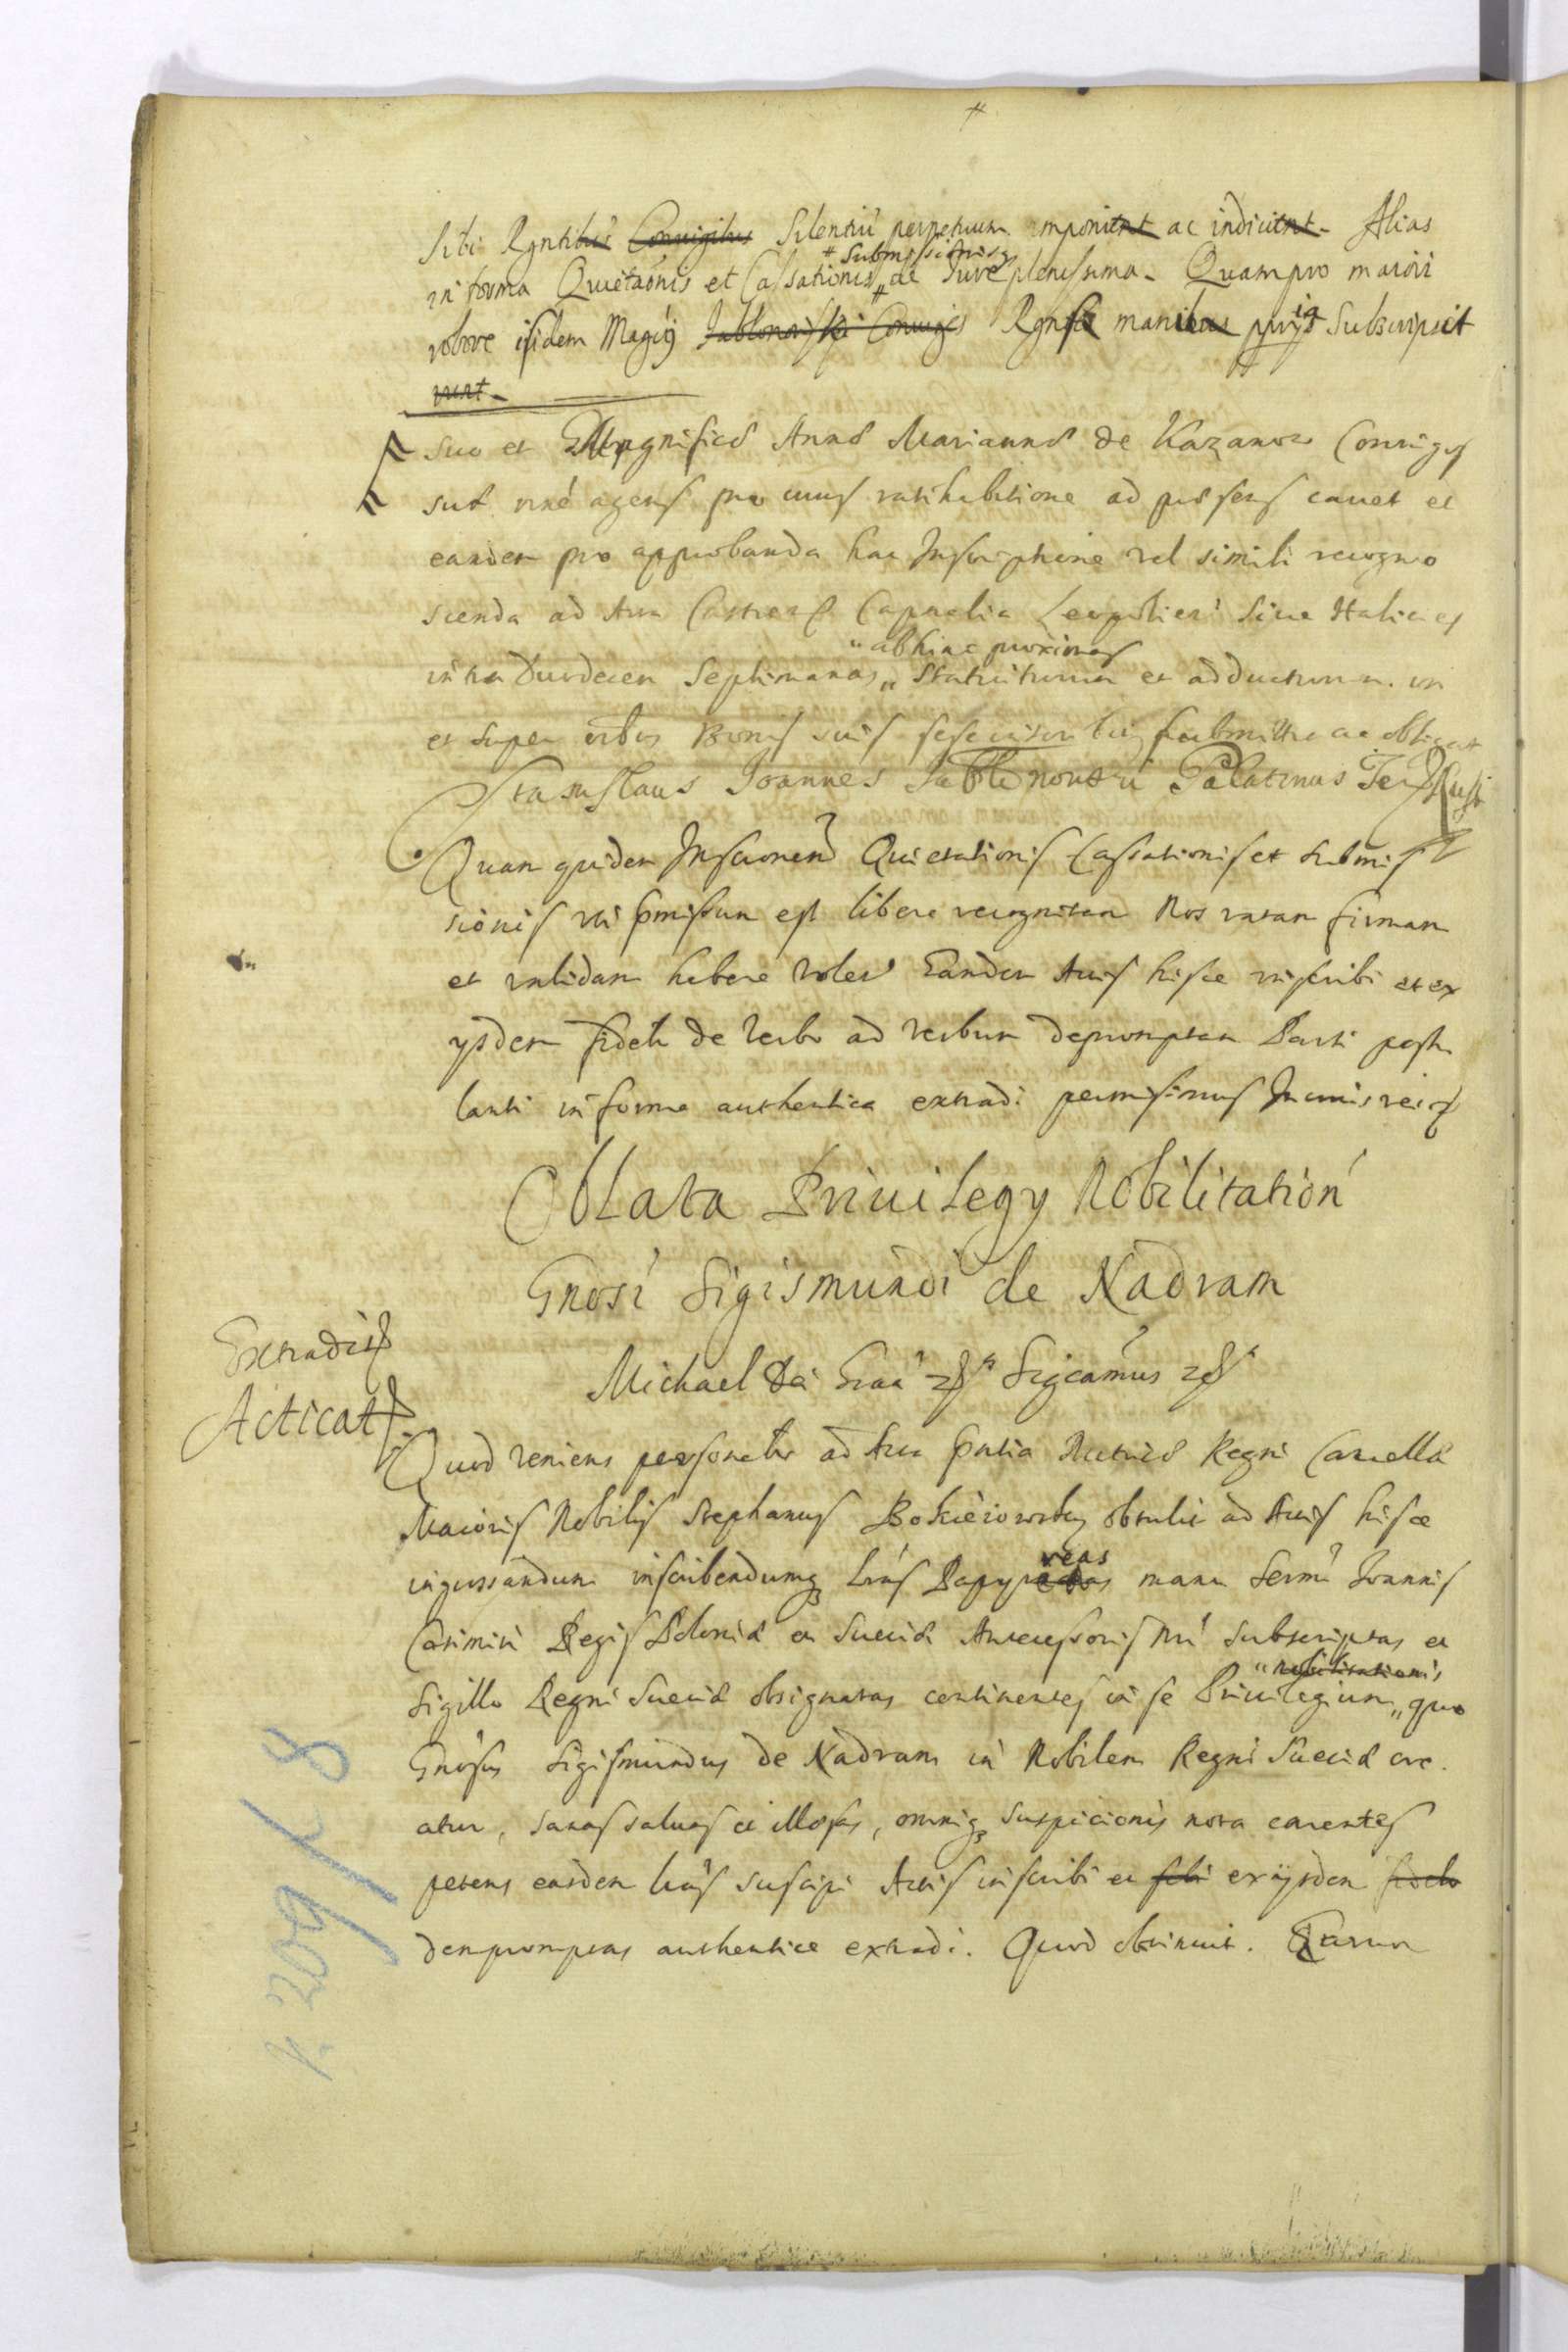 Sibi Rgntibus Coniugibus Silentiũ perpetuum imponunt ac indicunt. Alias
in forma Quietaõnis et Cassationis Submissionisq ac Jure plenissima. Quam pro maiori
robore iisdem Magcij Jablonowski Coniuges Rgnscẽ manibus pprijs Subscripsit
runt.
suo et Magnificæ Annæ Mariannæ de Kazanow Coniugis
suæ nrẽ agens pro cuius ratihabitione ad præsens cauet et
eandem pro approbanda hac Inscriptione vel simili recogno
scenda ad Acta Castren Capitalia Leopolien siue Halicien
intra duodecem Septimanas „ abhinc proximas Statuturum et adducturum
et super oibus Bonis suis sese submittit ac obligat
Stanislaus Joannes Jabłonowski Palatinus Terr Russi
Quam quidem Inscrionem Quietationis Cassationis et submis
sionis uti pmissum est libere recognitam Nos ratam firmam
et validam habere volen Eandem Actis hisce inscribi et ex
ysdem fideli de Verbo ad verbum depromptam Parti postu
lanti in forma authentica extradi permisimus In cuius rei
Oblata Priuilegy Nobilitation
Gnosi Sigismundi de Nadram
Michael Dei Graã Sigcamus
Extradit
Acticat
Quod veniens personalr ad Acta pntia Metrices Regni Cancellæ
Maioris Nobilis Stephanus obtulit ad Actis hisce
ingrossandum inscribendumq Lras Papyreas manu Sermi Joannis
Casimiri Regis Poloniæ et Sueciæ Antecessoris Nri subscriptas et
Sigillo Regni Sueciæ obsignatas continentes in se Priuilegium „ nobilitationis quo
Gnosus Sigismundus de Nadram in Nobilem Regni Sueciæ cre
atur, sanas saluas et illæsas, omniq suspicionis nota carentes
petens easdem Lras suscipi Actis inscribi et sibi ex ijsdem fidelr
depromptas authentice extradi. Quod obtinuit. Quarum
p. 209 f. 8